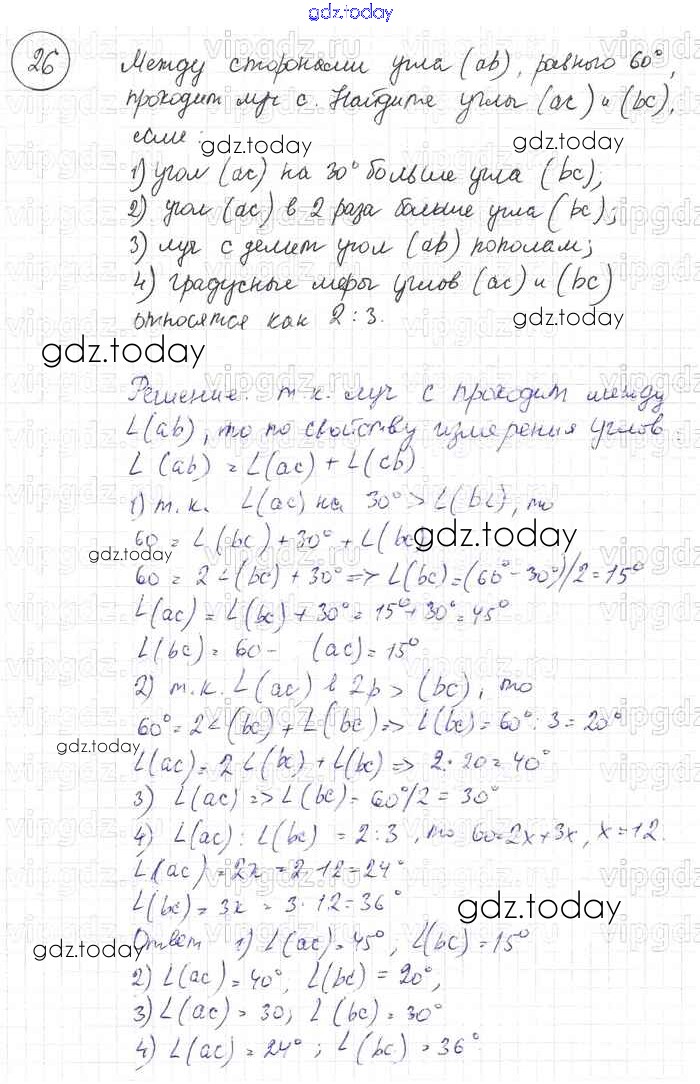 gdz.today
26 Между сторонами угла (ab), равного 60°,
проходит луч c. Найдите углы (ac) и (bc),
если:
gdz.today gdz.today
1) угол (ac) на 30° больше угла (bc);
2) угол (ac) в 2 раза больше угла (bc);
3) луч c делит угол (ab) пополам;
4) градусные меры углов (ac) и (bc)
относятся как 2:3.
gdz.today
gdz.today
Решение. т.к. луч c проходит между
L(ab), то по свойству измерения углов
L(ab) = L(ac) + L(cb)
1) т.к. L(ac) на 30° > L(bc), то
60 = L(bc) + 30° + L(bc)
gdz.today
gdz.today
60 = 2L(bc) + 30° => L(bc) = (60° - 30°)/2 = 15°
L(ac) = L(bc) + 30° = 15° + 30° = 45°
L(bc) = 60 - (ac) = 15°
2) т.к. L(ac) в 2р > (bc), то
60° = 2L(bc) + L(bc) => L(bc) = 60° : 3 = 20°
gdz.today
L(ac) = 2L(bc) + L(bc) => 2·20 = 40°
3) L(ac) => L(bc) = 60°/2 = 30°
4) L(ac) : L(bc) = 2:3, то 60=2x+3x, x=12.
L(ac) = 2x = 2·12 = 24°
L(bc) = 3x = 3·12 = 36°
gdz.today
Ответ 1) L(ac) = 45°, L(bc) = 15°
gdz.today
2) L(ac) = 40°, L(bc) = 20°,
3) L(ac) = 30; L(bc) = 30°
4) L(ac) = 24°; L(bc) = 36°.